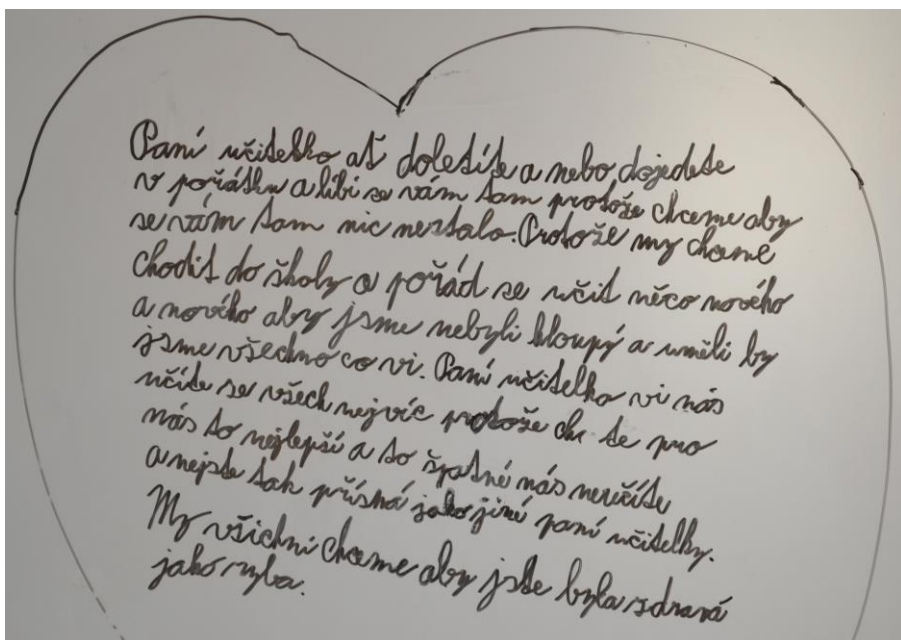 Paní učitelko ať doletíte a nebo dojedete
v pořádku a líbi se vám tam protože chceme aby
se vám tam nic nestalo. Protože my chceme
chodit do školy a pořád se učit něco nového
a nového aby jsme nebyli hloupý a uměli by
jsme všechno co vi. Paní učitelko vi nás
učíte se všech nejvíc protože chc te pro
nás to nejlepší a to špatné nás neučíte
a nejste tak přísná jako jiné paní učitelky.
My všichni chceme aby jste byla zdravá
jako ryba.